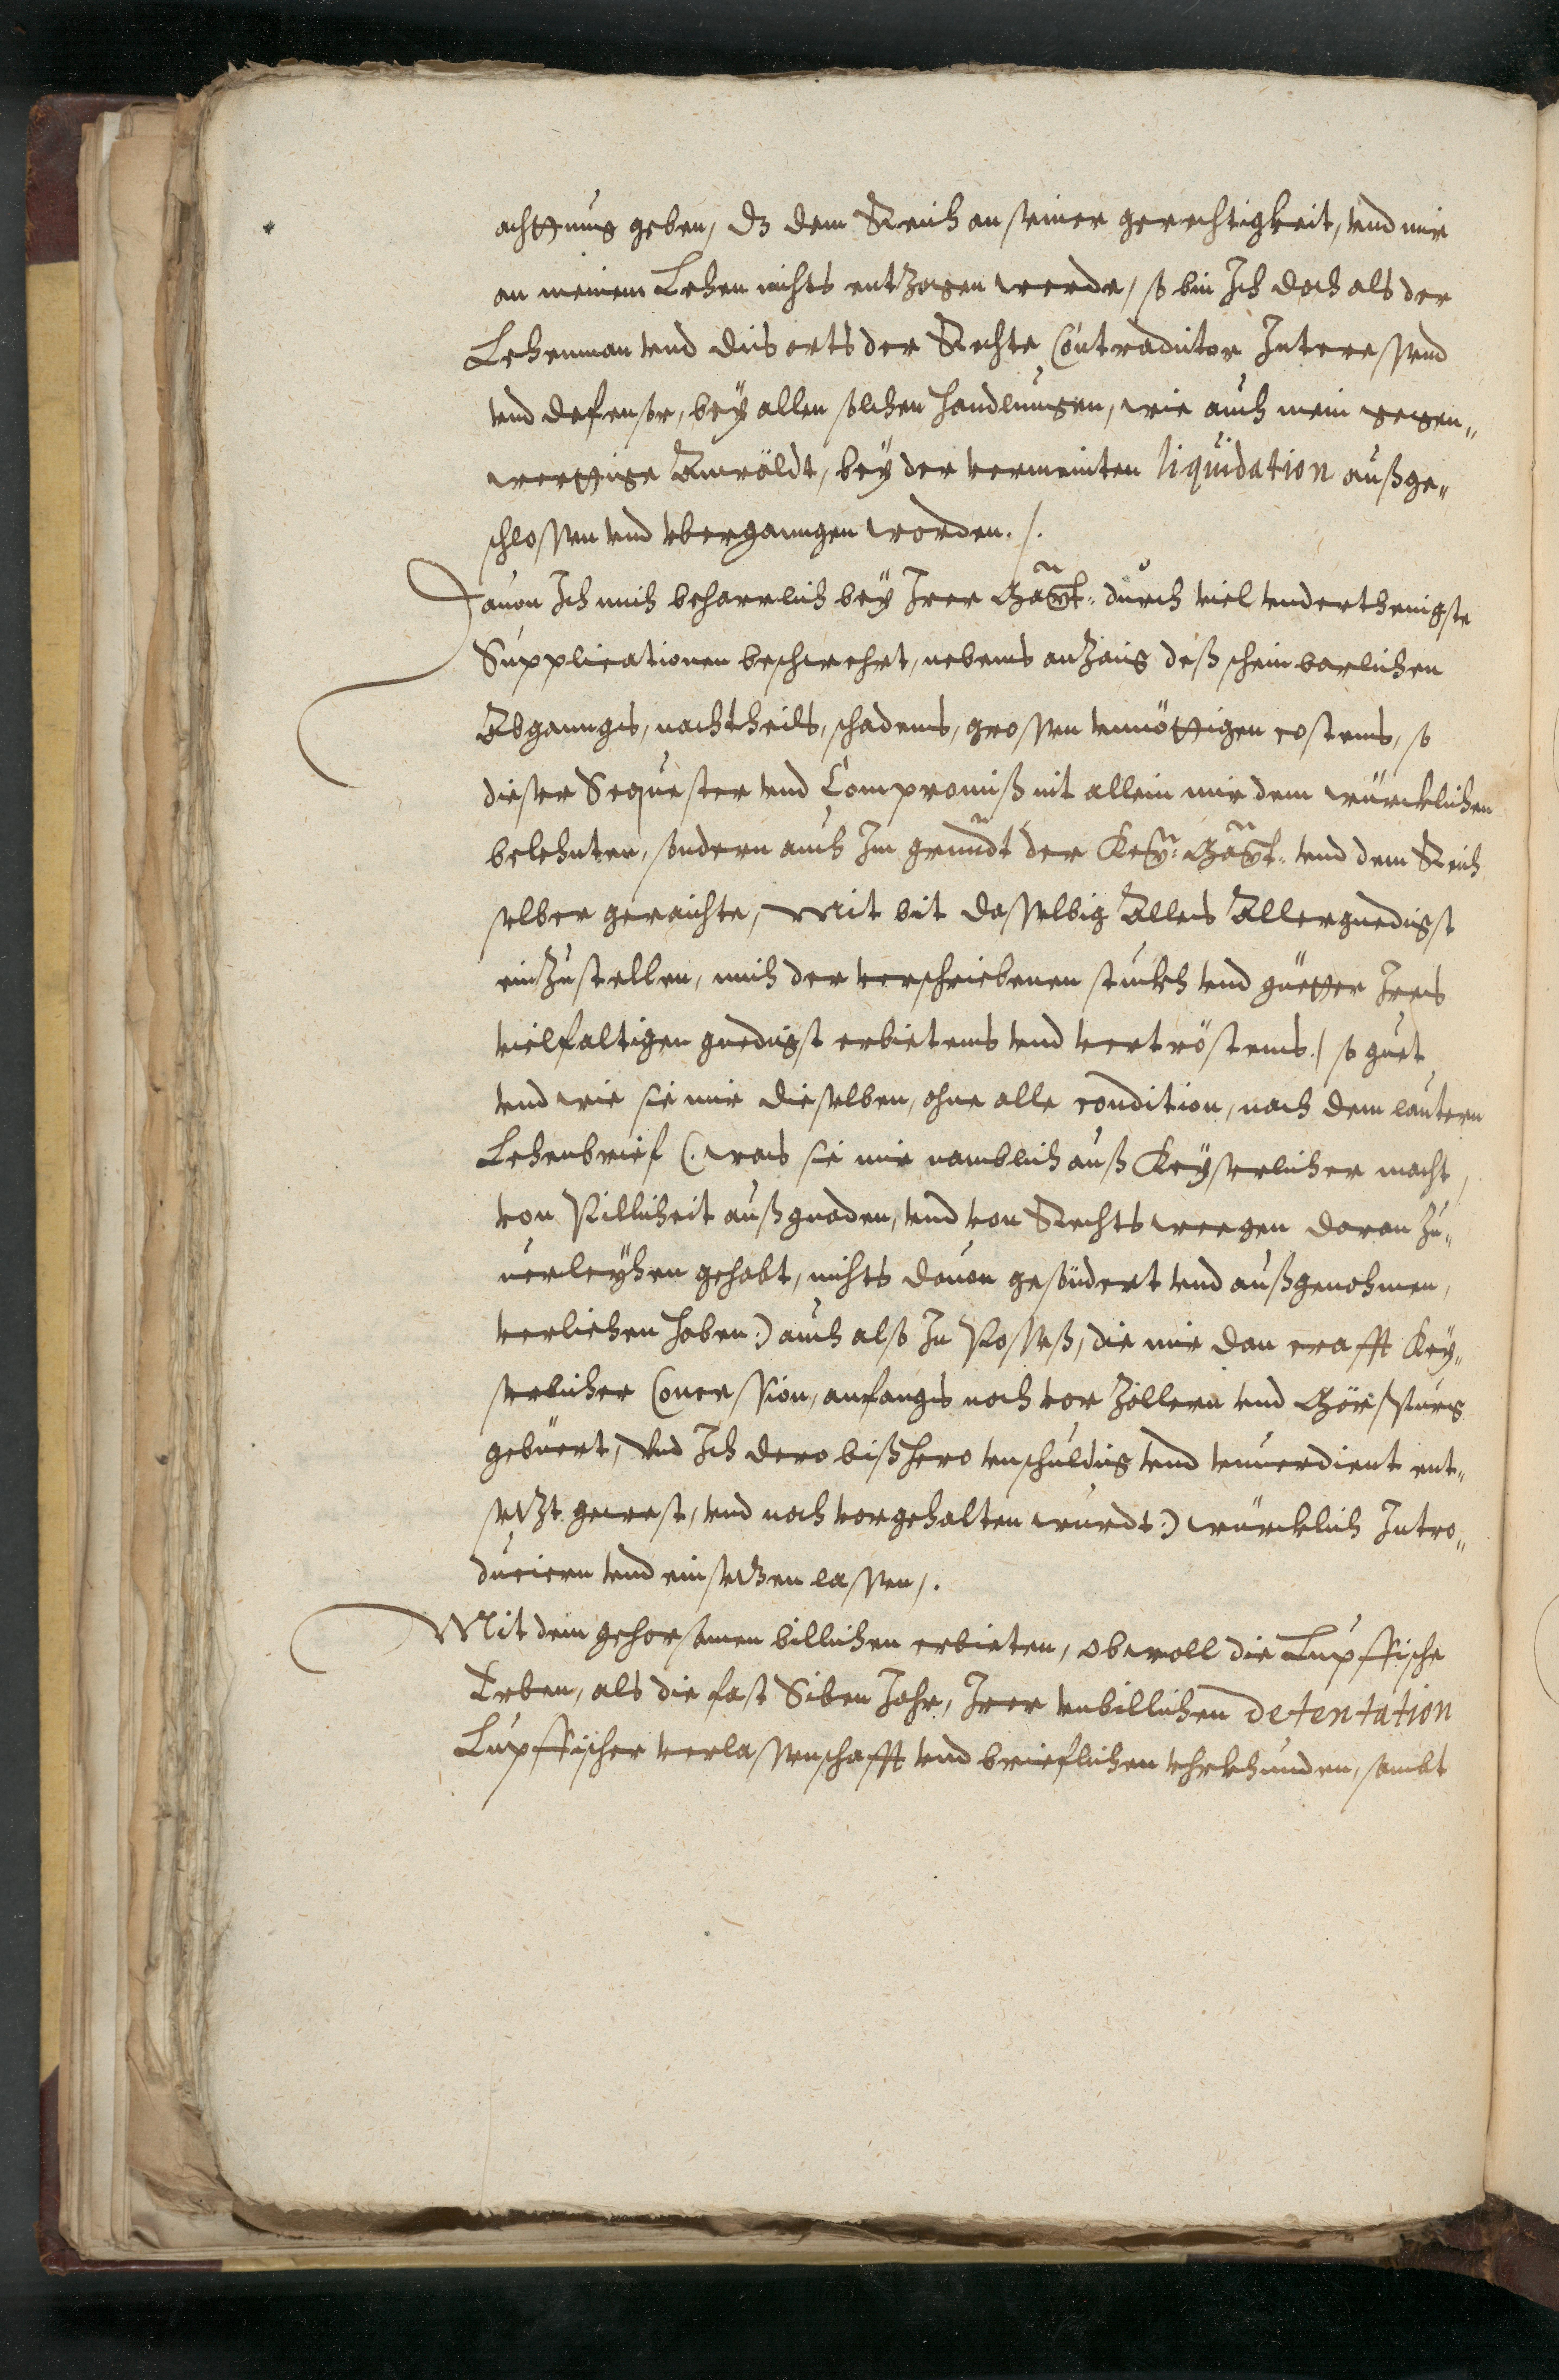 achttnus geben, dz dem Reich an seiner gerechtigkeit, vnd mir
an meinem Lehen nichts entzogen werde, so bin Ich doch als der
Lehenman vnd dis orts der Rechte Contradictor Interessend
vnd defensor, bey allen solchen handlungen, wie auch mein gegen„
wertige Anwäldt, bey der vermeinten liquidation außge„
schlossen vnd vbergangen worden. /.
Dauon Ich mich beharrlich bey Irer Maÿt: durch viel vnderthenigste
Supplicationen beschwehrt, nebens anzaig deß scheinbarlichen
Abgangs, nachtheils, schadens, grossen vnnöttigen costens, so
dieser Sequester vnd Compromiß nit allein mir dem würcklichen
belehnten, sondern auch Im grundt der Keÿ: Maÿt: vnd dem Reich
selber geraichte, Mit bit dasselbig Alles Allergnedigst
einzustellen, mich der verschriebenen stuckh vnd güetter Ires
vielfaltigen gnedigst erbietens vnd vertröstens / so guet
vnd wie sie mir dieselben, ohne alle condition, nach dem lautern
Lehenbrief (. was sie mir namblich auß Keyserlicher macht,
von Billicheit auß gnaden, vnd von Rechts weegen daran zu„
uerleyhen gehabt, nichts dauon gesöndert vnd außgenohmen,
verliehen haben:) auch also In Posseß, die mir dan crafft Key„
serlicher Concession, anfangs noch vor Zollern vnd Mörspurg
gebüert, Vnd Ich dero bißhero vnschuldig vnd vnuerdient ent„
setzt gewest, vnd noch vorgehalten wurdt:) würcklich Intro„
duciern vnd einsetzen lassen /.
Mit dem gehorsamen billichen erbieten, obwoll die Lupffische
Erben, als die fast Siben Jahr, Irer vnbillichen detentation
Lupffischer verlassenschafft vnd brieflichen vhrkhunden, sambt